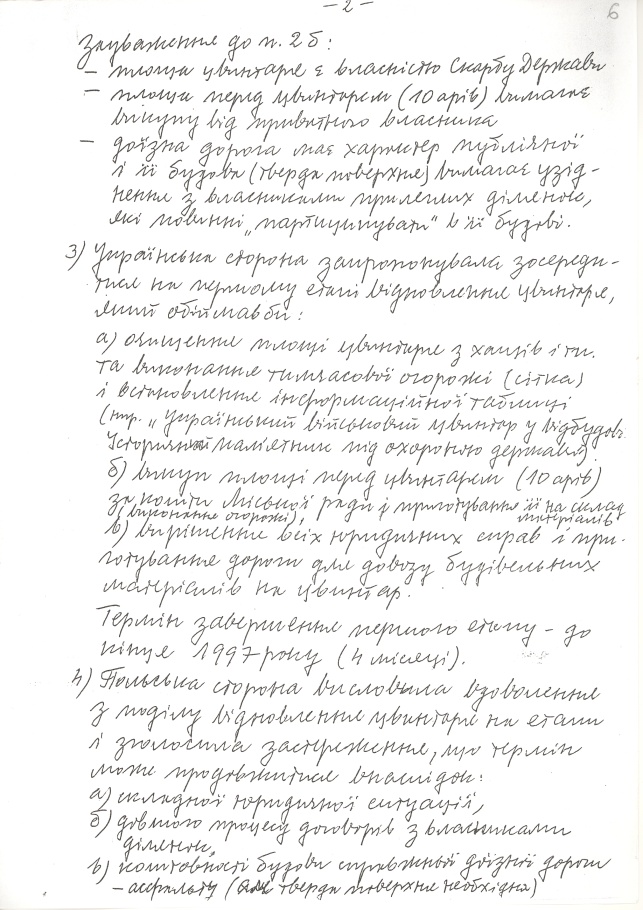 – 2 –
6
Зауваження до п. 2б:
– площа цвинтаря є власністю Скарбу Держави
– площа перед цвинтарем (10 арів) вимагає
викупу від приватного власника
– доїзна дорога має характер публічної
і її будова (тверда поверхня) вимагає узгід-
нення з власниками прилеглих ділянок,
які повинні „партиципувати" в її будові.
3) Українська сторона запропонувала зосереди-
тися на першому етапі відновлення цвинтаря,
який обіймав би:
а) очищення площі цвинтаря з хащів і ти.
та виконання тимчасової огорожі (сітка)
і встановлення інформаційної таблиці
(нпр. „Український військовий цвинтар у відбудові.
Історичний пам'ятник під охороною держави").
б) викуп площі перед цвинтарем (10 арів)
за кошти Міської ради і приготування її на склад
(виконання огорожі), матеріалів
в) вирішення всіх юридичних справ і при-
готування дороги для довозу будівельних
матеріалів на цвинтар.
Термін завершення першого етапу – до
кінця 1997 року (4 місяці).
4) Польська сторона висловила вдоволення
з поділу відновлення цвинтаря на етапи
і зголосила застереження, що термін
може продовжитися внаслідок:
а) складної юридичної ситуації,
б) довгого процесу договорів з власниками
ділянок,
в) коштовності будови справжньої доїзної дороги
– асфальту (бо тверда поверхня необхідна)